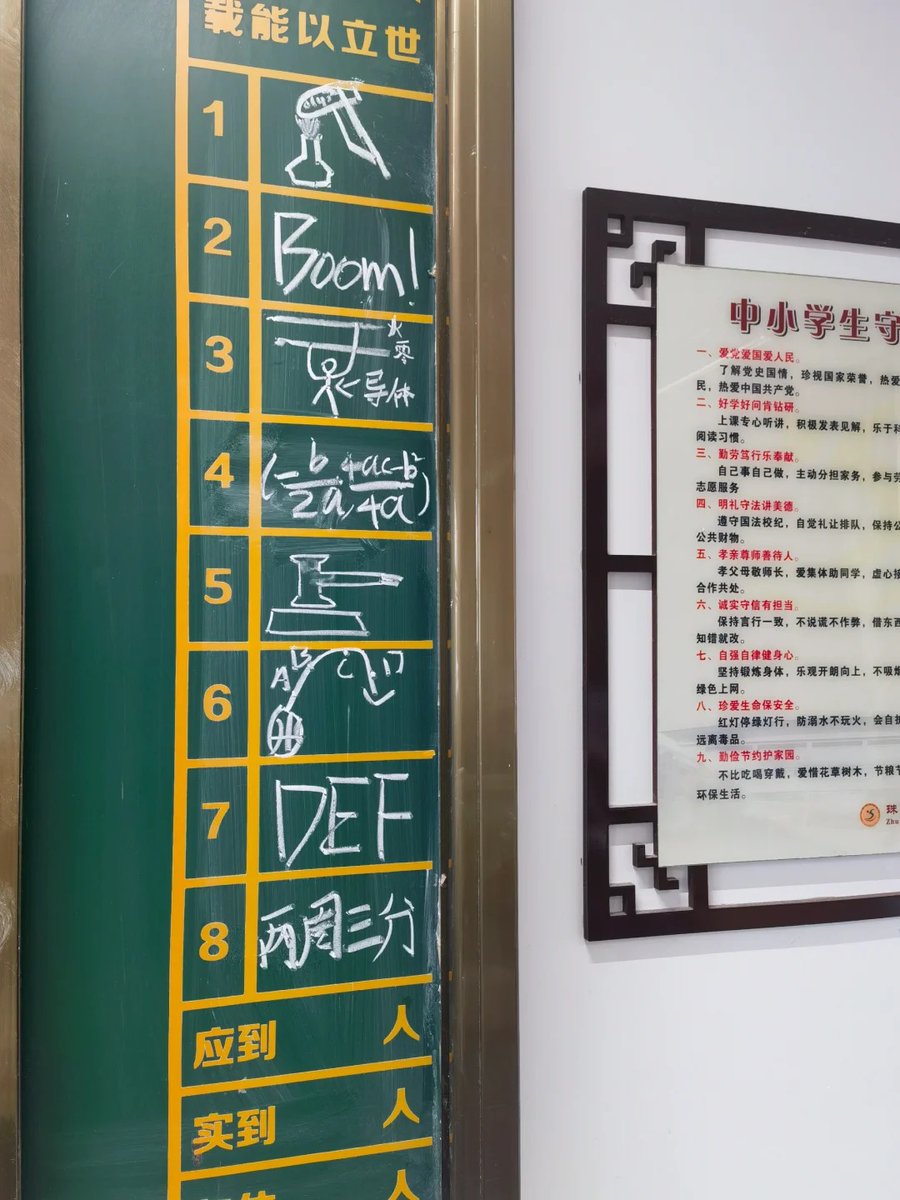 载能以立世
1
2
Boom!
3
火
零
导体
4
(-b/2a, 4ac-b²/4a)
5
6
A B C D
7
DEF
8
两周三分
应到 人
实到 人
人
中小学生守
一、爱党爱国爱人民。
了解党史国情，珍视国家荣誉，热爱
民，热爱中国共产党。
二、好学好问肯钻研。
上课专心听讲，积极发表见解，乐于科
阅读习惯。
三、勤劳笃行乐奉献。
自己事自己做，主动分担家务，参与劳
志愿服务
四、明礼守法讲美德。
遵守国法校纪，自觉礼让排队，保持公
公共财物。
五、孝亲尊师善待人。
孝父母敬师长，爱集体助同学，虚心接
合作共处。
六、诚实守信有担当。
保持言行一致，不说谎不作弊，借东西
知错就改。
七、自强自律健身心。
坚持锻炼身体，乐观开朗向上，不吸烟
绿色上网。
八、珍爱生命保安全。
红灯停绿灯行，防溺水不玩火，会自护
远离毒品。
九、勤俭节约护家园。
不比吃喝穿戴，爱惜花草树木，节粮节
环保生活。
珠
Zhu